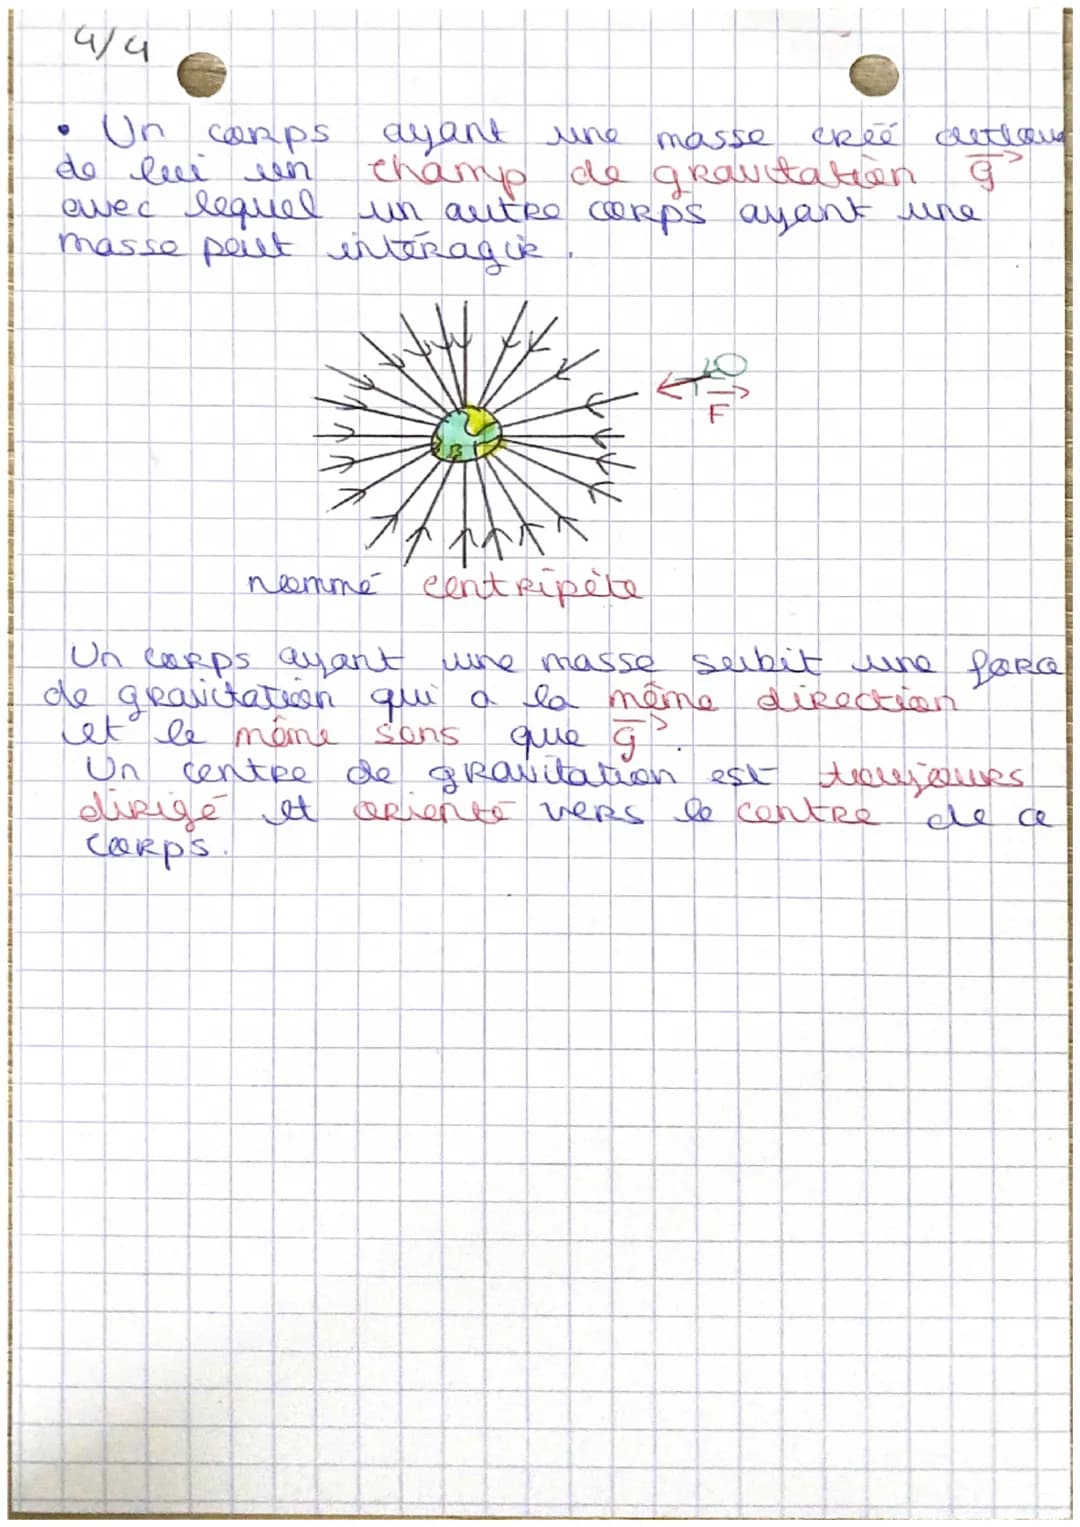 4/4
• Un corps ayant une masse créé autour
de lui un champ de gravitation g
avec lequel un autre corps ayant une
masse peut intéragir.
F
nommé centripète
Un corps ayant une masse subit une force
de gravitation qui a la même direction
et le même sens que g.
Un centre de gravitation est toujours
dirigé et orienté vers le centre de ce
corps.